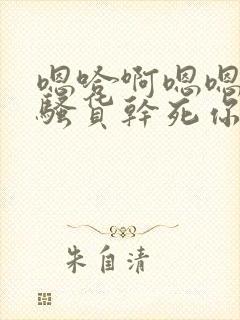 嗯嗒啊嗯嗯
骚货幹死你
朱自清